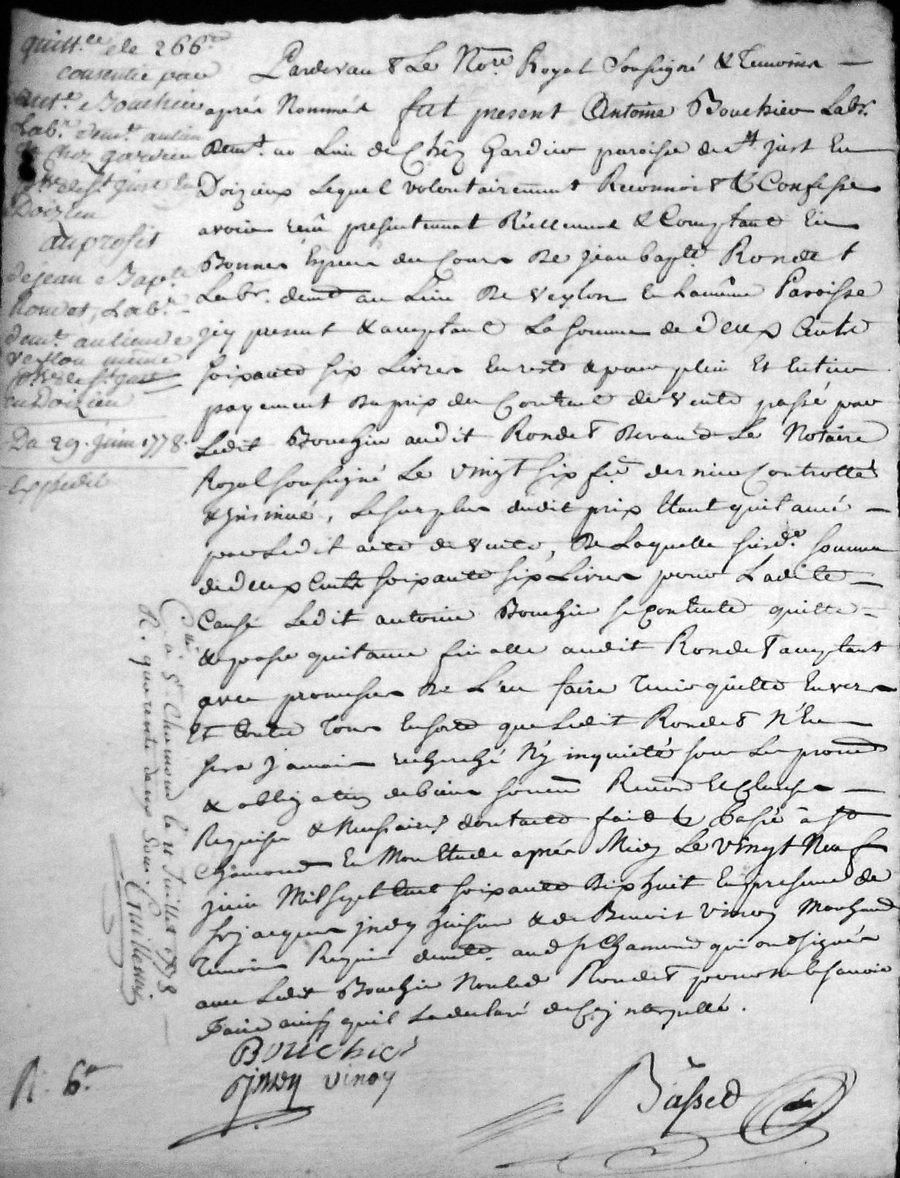 quitt.ce de 266lt
consentie par
Ant.e Bouchier
Lab.r dem.t au lieu
de chez gardier
p.sse de St just en
Doizieu
au profit
de jean Bap.te
Rondet, Lab.r
dem.t au lieu de
Veylon même
p.sse de St just
en Doizieu
Du 29. juin 1778.
Expedié
Pardevant Le No.re Royal Soussigné & Temoins
après Nommés fut present Antoine Bouchier Lab.r
dem.t au Lieu de Chez Gardier paroisse de St just En
Doizieux Lequel volontairement Reconnoit & Confesse
avoir reçu présentement Réellement & Comptant En
Bonnes Espèces du Cours de jean bapt.e Rondet
Lab.r dem.t au Lieu de Veylon En La même Paroisse
jcy present & acceptant La somme de deux Cents
soixante six Livres En reste & pour plein Et Entier
payement du prix du Contrat de vente passé par
Ledit Bouchier audit Rondet devant Le Notaire
Royal soussigné Le vingt six dernier Controllé
& jnsinué, Le surplus dudit prix Etant quitancé
par Ledit acte de vente, de Laquelle susd.e somme
de deux Cents soixante six Livres pour Ladite
Cause Ledit antoine Bouchier se Contente quitte
& passe quitance finalle audit Rondet acceptant
avec promesse de L'en faire Tenir quitte Envers
Et Contre Tous En sorte que Ledit Rondet N'En
sera jamais recherché Ny inquieté sous Les prom.
& obligation de biens soumis. Renon. Et Clauses
Requises & Necessaires dont acte fait & Passé à St
Chamond En Mon Etude après Midy Le vingt Neuf
juin Mil sept Cent soixante dix huit En presence de
S.r jacques jmdy & de Benoit vinoy Marchand
Temoins Requis dem.t aud. St Chamond qui ont signés
avec Ledit Bouchier Non led. Rondet pour ne le savoir
faire ainsy qu'il La declaré de Ce enquis.
Bouchier
vinoy
Basset
C.llé à St Chamond le 11 Juillet 1778
R. quarente deux sous. Guillemin
R. 6lt